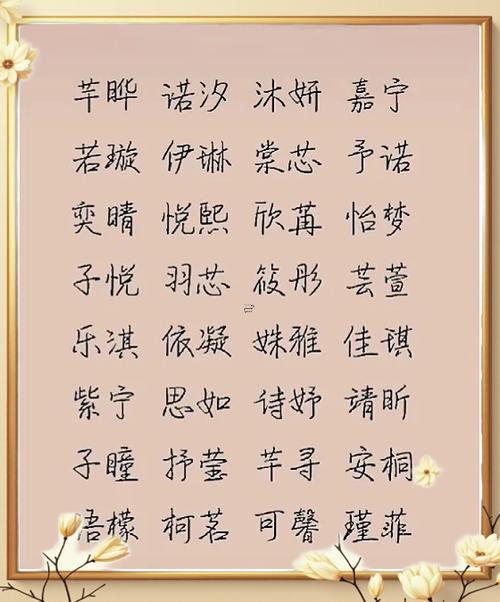 芊晔 诺汐 沐妍 嘉宁
若璇 伊琳 棠芯 予诺
奕晴 悦熙 欣苒 怡梦
子悦 羽芯 筱彤 芸萱
乐淇 依凝 姝雅 佳琪
紫宁 思如 诗妤 靖昕
子瞳 抒莹 芊寻 安桐
语檬 柯茗 可馨 瑾菲